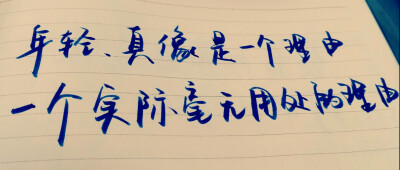 年轻、真像是一个理由
一个实际毫无用处的理由